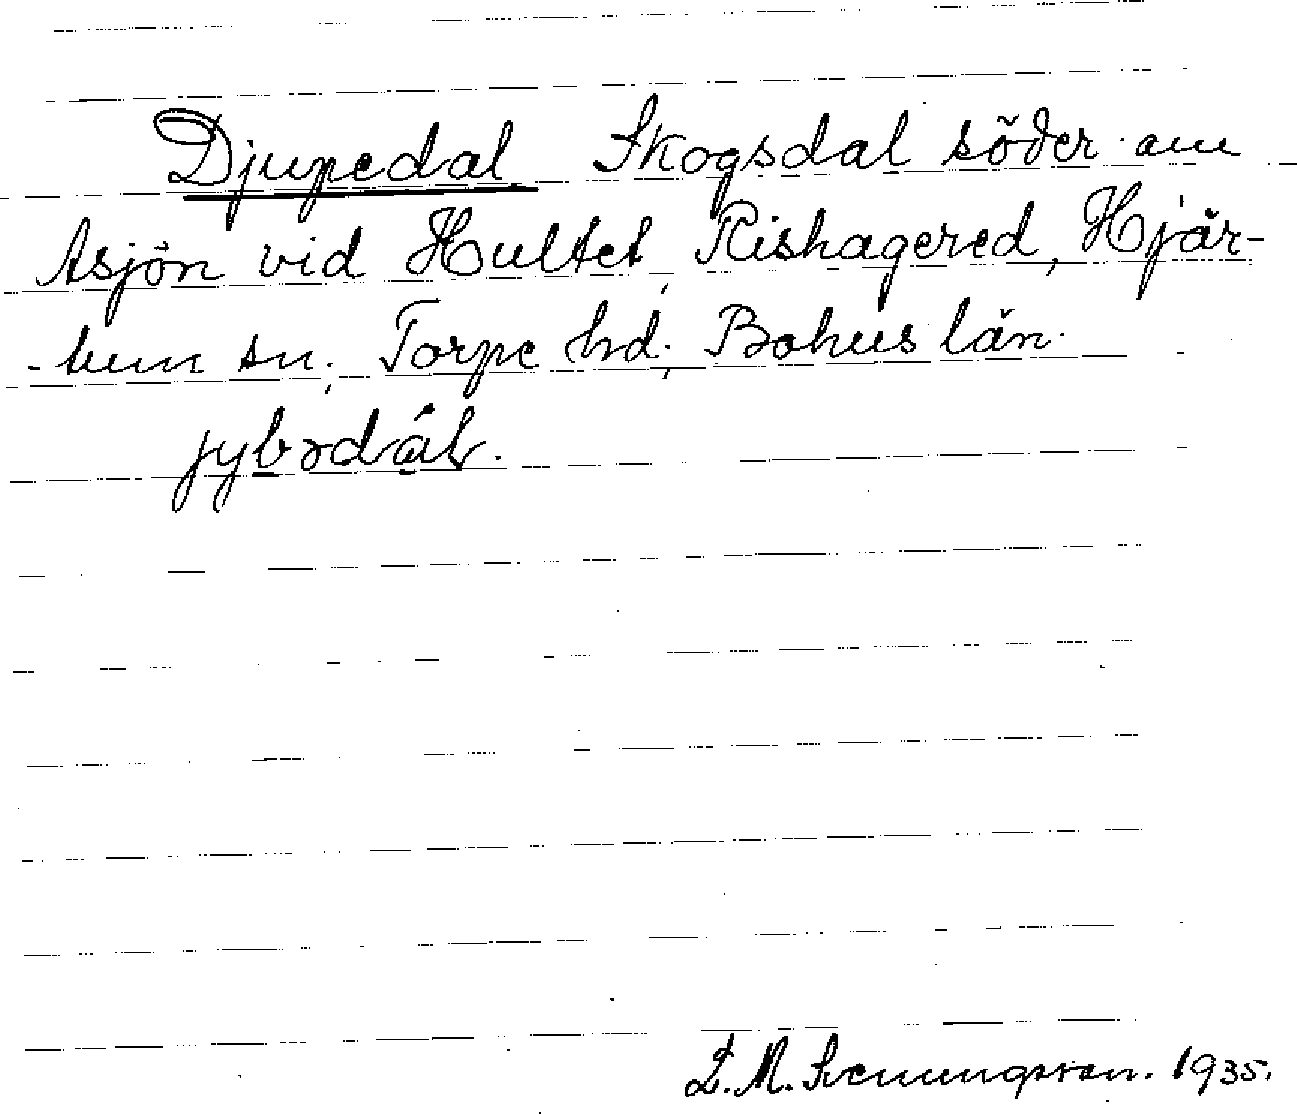 Djupedal Skogsdal söder om
Åsjön vid Hultet, Rishagered, Hjär-
-tum sn; Torpe hd; Bohus län.
jybɔdál.
L. M. Svenungsson. 1935.